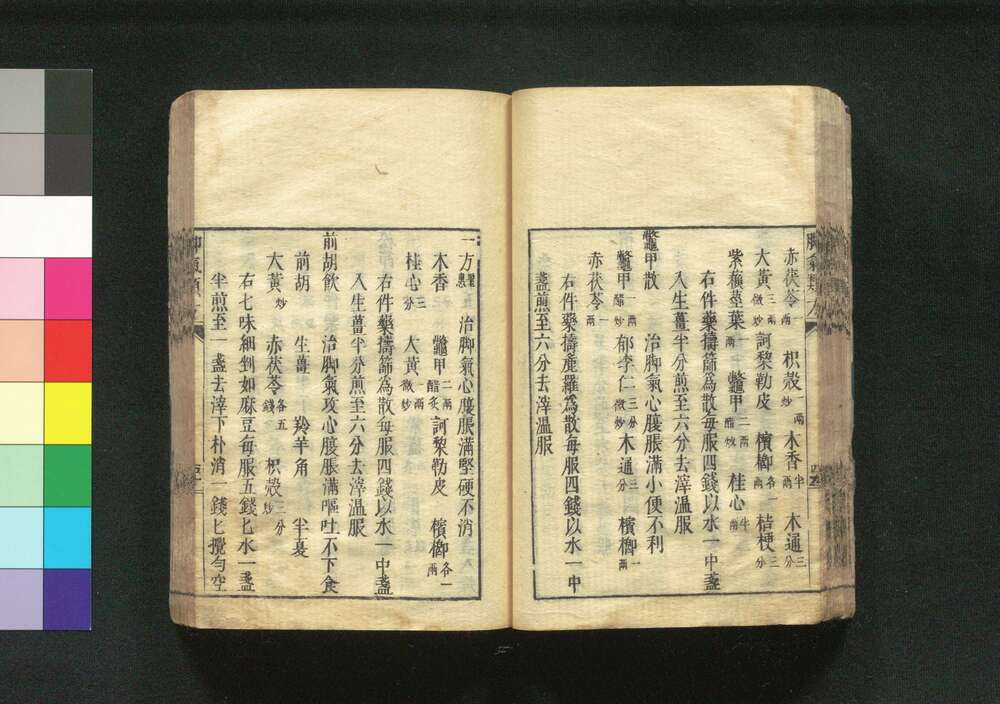 赤茯苓一兩 枳殼一兩炒 木香半兩 木通三分
大黃三兩微炒 訶黎勒皮 檳榔各一兩 桔梗三分
紫蘇莖葉一兩 鼈甲二兩醋炒 桂心半兩
右件藥擣篩為散每服四錢以水一中盞
入生薑半分煎至六分去滓溫服
鼈甲散 治脚氣心腹脹滿小便不利
鼈甲一兩醋炒 郁李仁三分微炒 木通三分 檳榔一兩
赤茯苓一兩
右件藥擣麁羅為散每服四錢以水一中
盞煎至六分去滓溫服
一方 治脚氣心腹脹滿堅硬不消
木香 鼈甲二兩醋炙 訶黎勒皮 檳榔各一兩
桂心三分 大黃二兩微炒
右件藥擣篩為散每服四錢以水一中盞
入生薑半分煎至六分去滓溫服
前胡飲 治脚氣攻心腹脹滿嘔吐不下食
前胡 生薑 羚羊角 半夏
大黃炒 赤茯苓各五錢 枳殼三分炒
右七味細剉如麻豆每服五錢匕水一盞
半煎至一盞去滓下朴消一錢匕攪勻空
脚氣類方